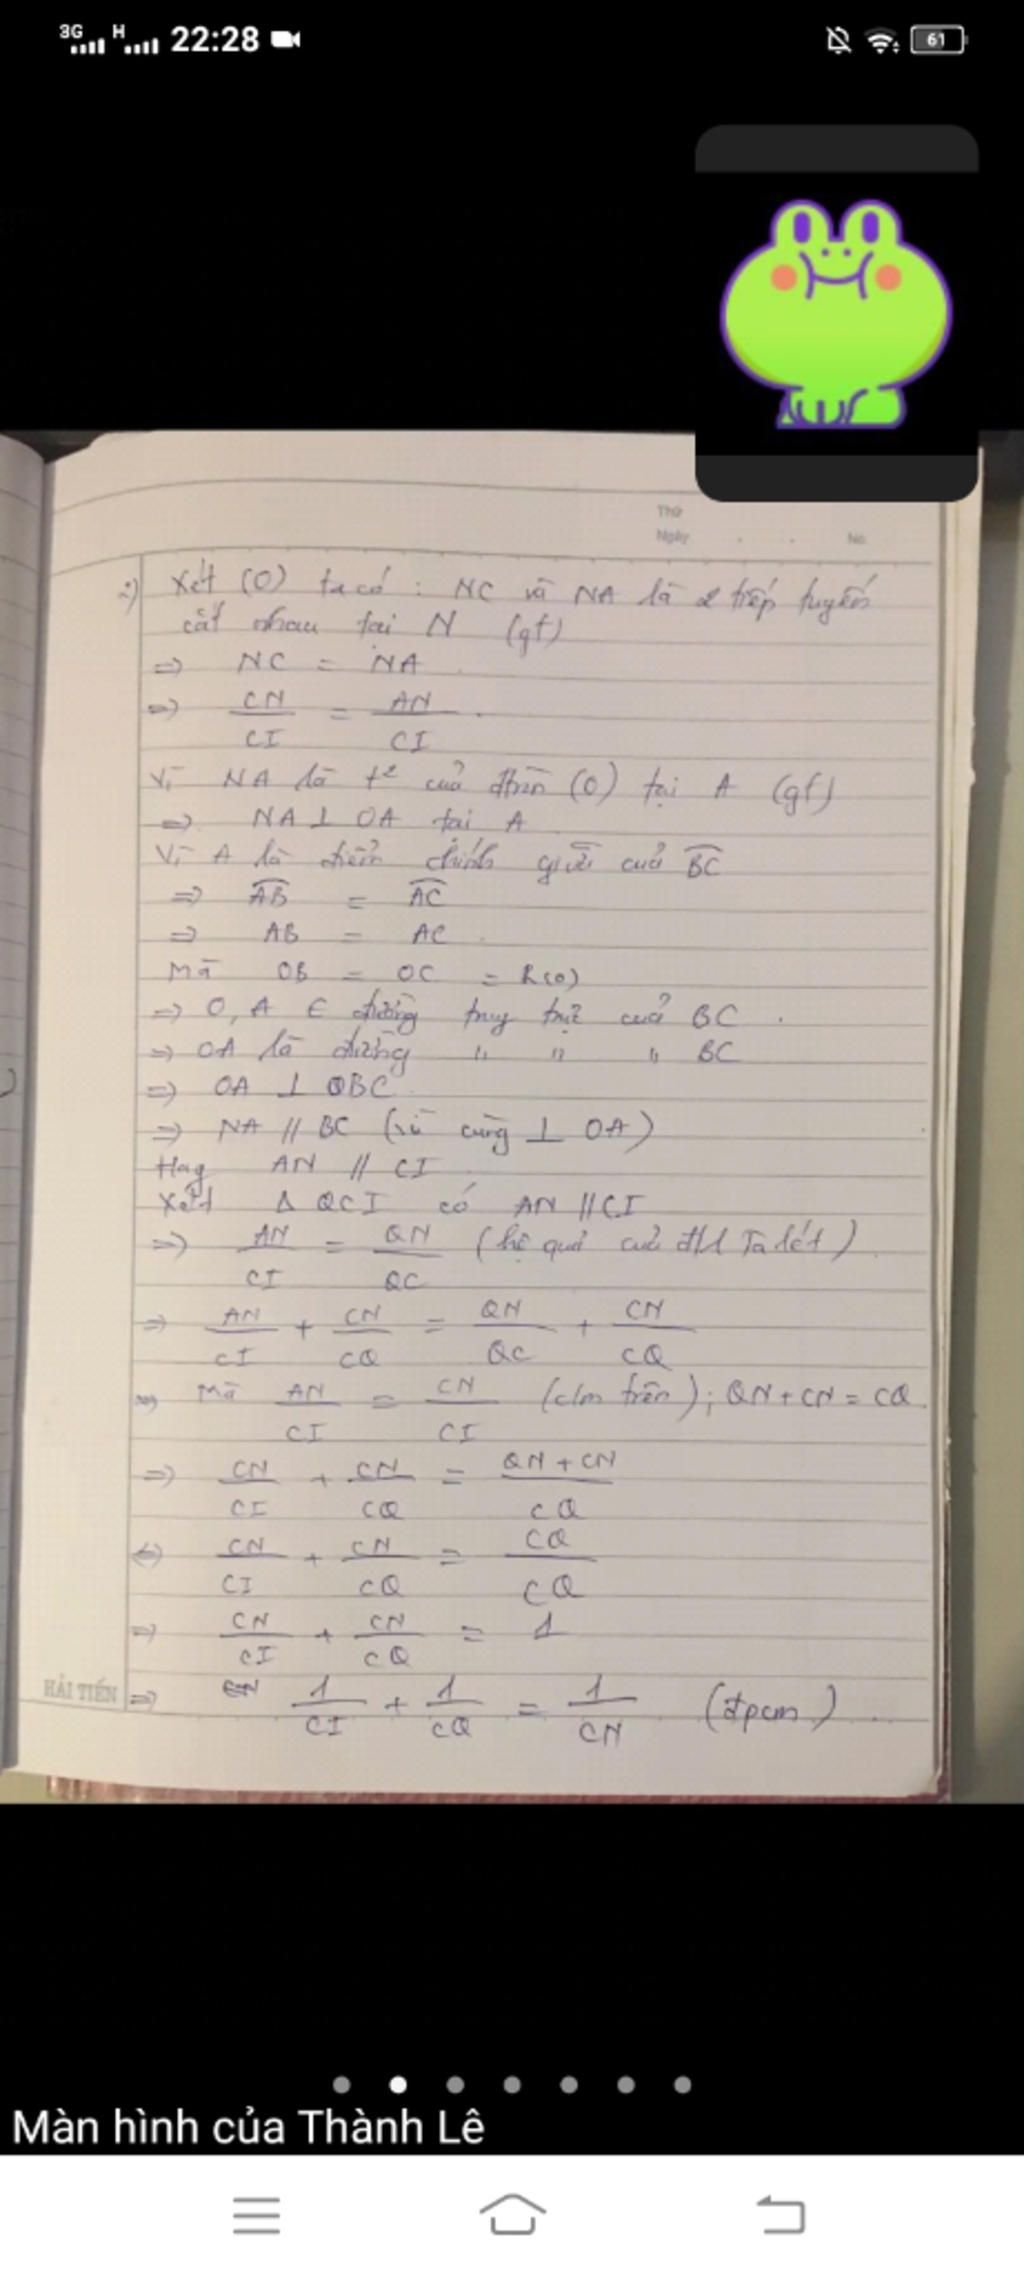 3G H 22:28 61
Thứ
Ngày . . No.
Xét (O) ta có : NC và NA là 2 tiếp tuyến
cắt nhau tại N (gt)
=> NC = NA
=> CN/CI = AN/CI
Vì NA là t² của đtròn (O) tại A (gt)
=> NA ⊥ OA tại A
Vì A là điểm chính giữa của BC
=> AB = AC
=> AB = AC
Mà OB = OC = R(O)
=> O, A ∈ đường trung trực của BC .
=> OA là đường " " " BC
=> OA ⊥ BC
=> NA // BC (vì cùng ⊥ OA)
Hay AN // CI
Xét Δ QCI có AN // CI
=> AN/CI = QN/QC (hệ quả của đl Ta lét)
=> AN/CI + CN/CQ = QN/QC + CN/CQ
=> Mà AN/CI = CN/CI (clm trên) ; QN + CN = CQ
=> CN/CI + CN/CQ = QN + CN/CQ
<=> CN/CI + CN/CQ = CQ/CQ
=> CN/CI + CN/CQ = 1
HẢI TIẾN => 1/CI + 1/CQ = 1/CN (đpcm)
Màn hình của Thành Lê